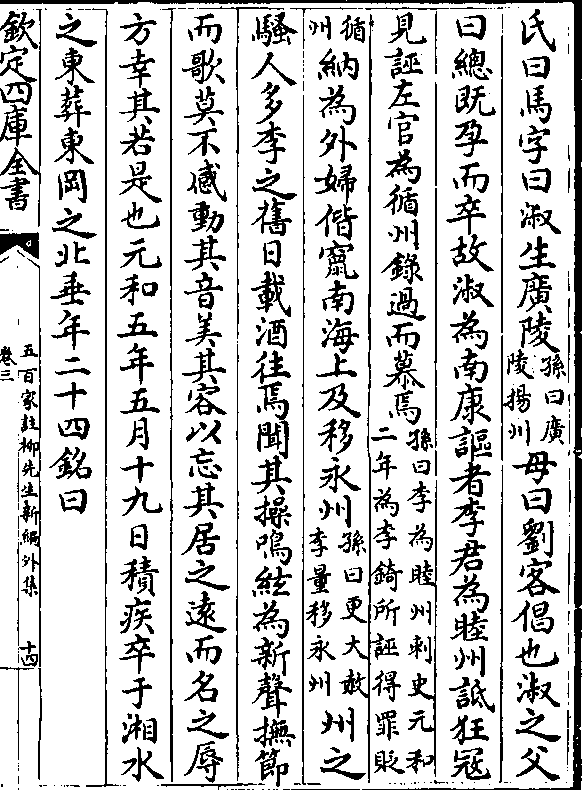 氏曰馬字曰淑生廣陵孫曰廣陵揚州母曰劉客倡也淑之父
曰總既孕而卒故淑為南康謳者李君為睦州詆狂冦
見誣左官為循州錄過而慕焉孫曰李為睦州刺史元和二年為李錡所誣得罪貶
循州納為外婦偕竄南海上及移永州孫曰更大赦李量移永州州之
騷人多李之舊日載酒往焉聞其操鳴絃為新聲撫節
而歌莫不感動其音美其容以忘其居之遠而名之辱
方幸其若是也元和五年五月十九日積疾卒于湘水
之東葬東岡之北垂年二十四銘曰
欽定四庫全書
五百家註柳先生新編外集
卷三
十四